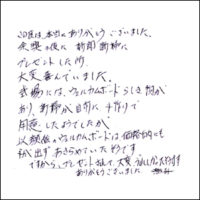 この度は本当にありがとうございました。
余興の後に 新郎新婦に
プレゼントした所、
大変喜んでいました。
式場には、ウェルカムボードらしき物が
あり、新婦が自前に手作りで
用意したようでしたが、
以頼後のウェルカムボードは価格的にも
手が出ず、あきらめていたそうです。
ですから、プレゼントされて、大変うれしかったそうです
ありがとうございました